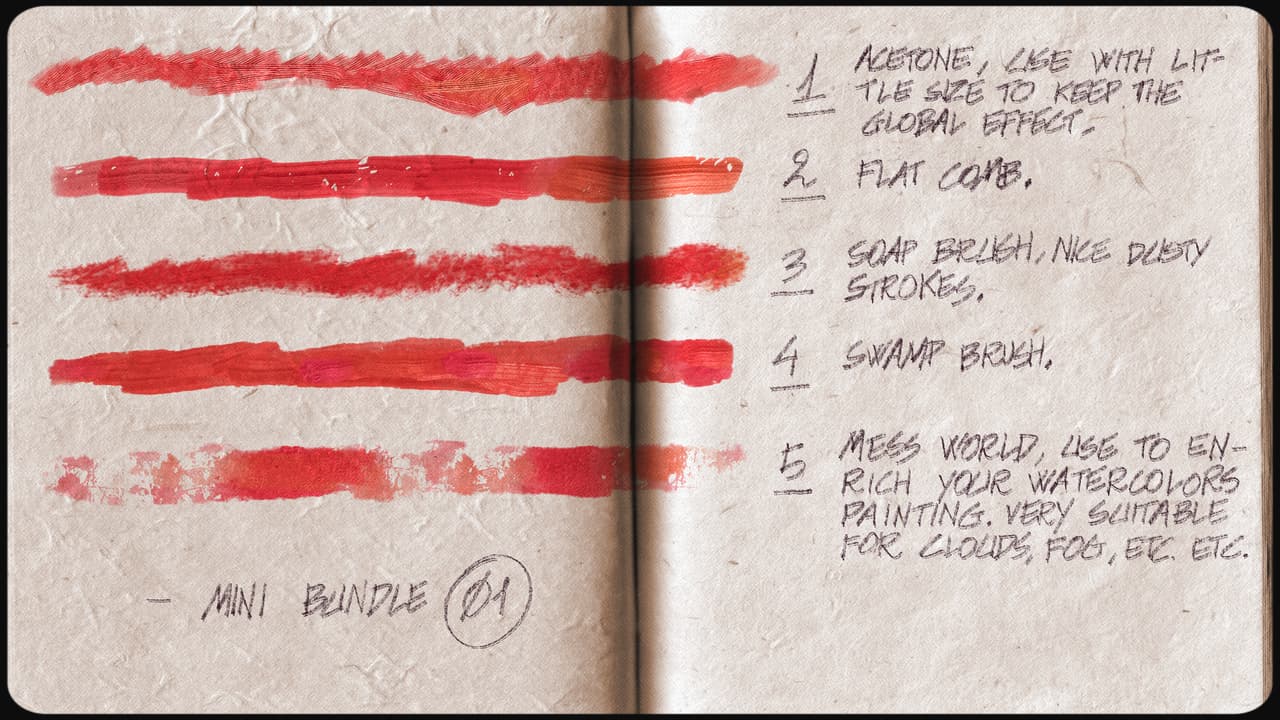 1 ACETONE, USE WITH LIT-
TLE SIZE TO KEEP THE
GLOBAL EFFECT.
2 FLAT COMB.
3 SOAP BRUSH, NICE DUSTY
STROKES.
4 SWAMP BRUSH.
5 MESS WORLD, USE TO EN-
RICH YOUR WATERCOLORS
PAINTING. VERY SUITABLE
FOR CLOUDS, FOG, ETC. ETC.
- MINI BUNDLE 01